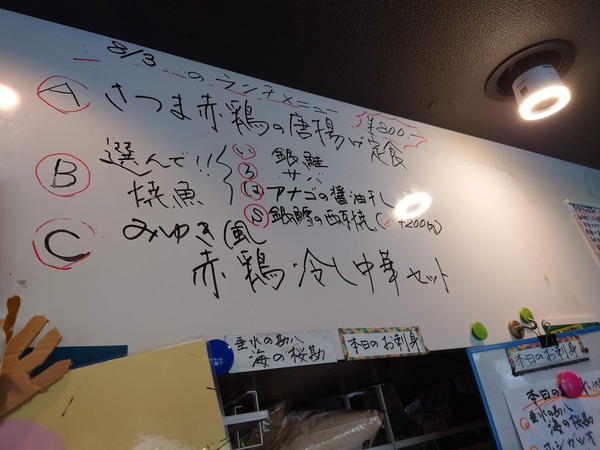 8/3 のランチメニュー
A さつま赤鶏の唐揚げ定食 ¥800-
B 選んで!! 焼魚
い 銀鮭
ろ サバ
は アナゴの醤油干し
S 銀鱈の西京焼 (+200円)
C みゆき風
赤鶏・冷し中華セット
垂水の勘八
海の桜勘
本日のお刺身
本日のお刺身
本日の
垂水の勘八
海の桜勘
ホンガツオ